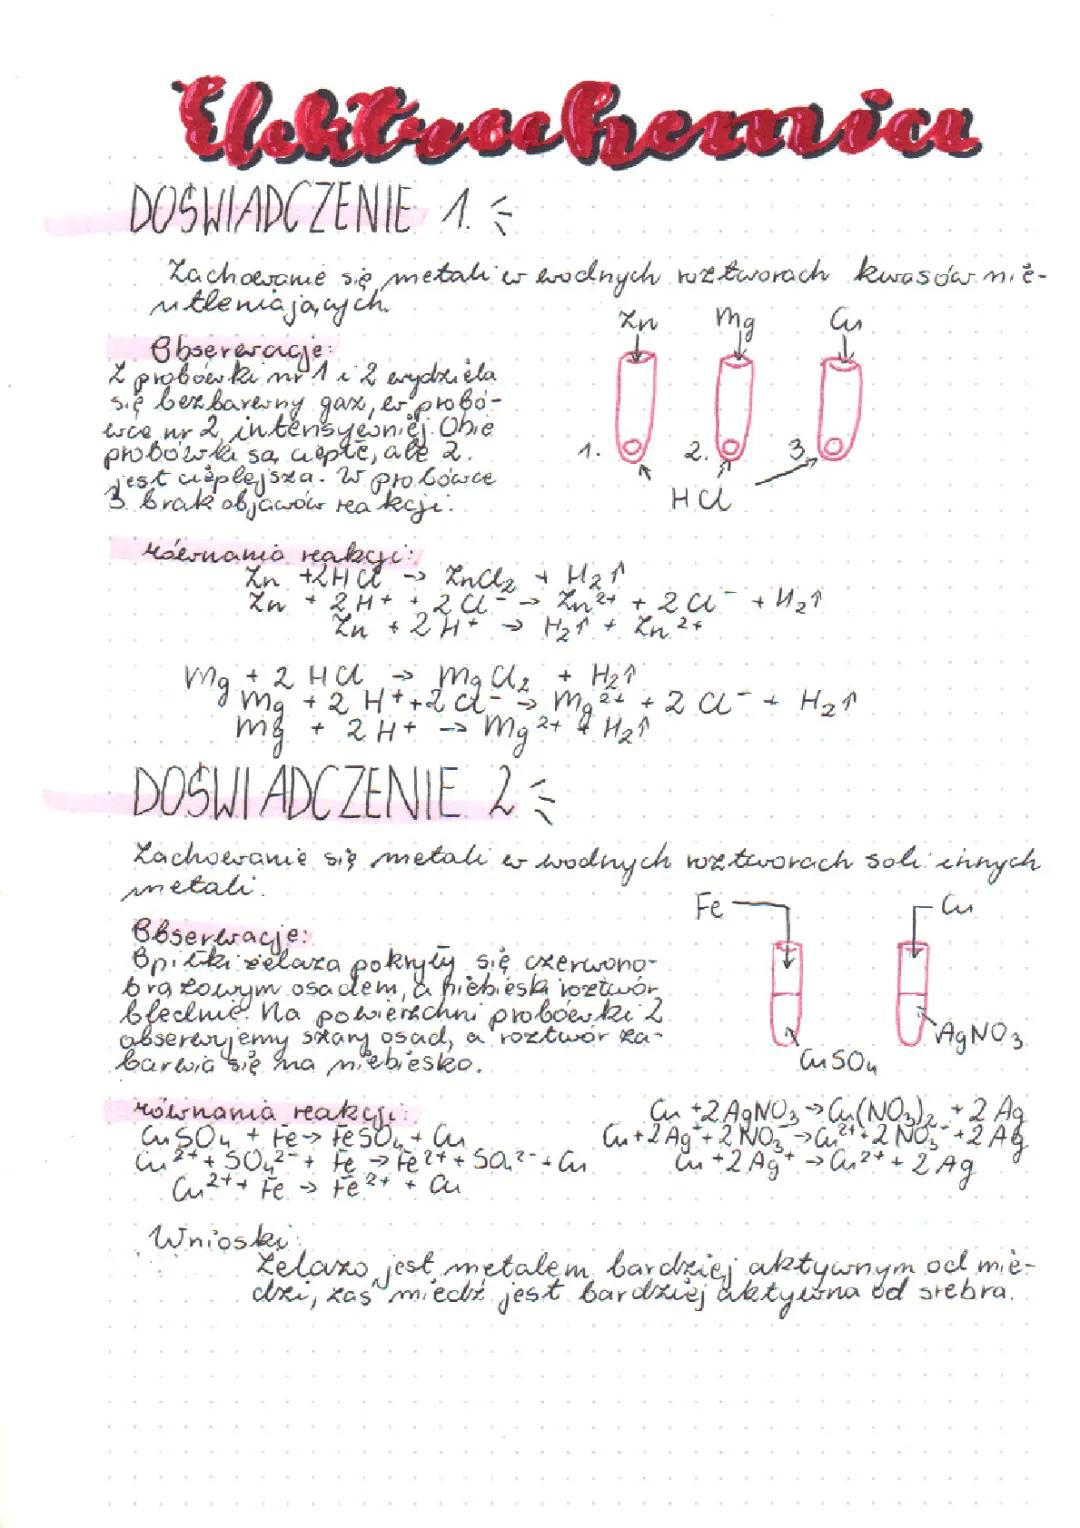 Elektrochemia
DOŚWIADCZENIE 1.
Zachowanie się metali w wodnych roztworach kwasów nie-
utleniających.
Zn Mg Cu
Obserwacje:
Z probówki nr 1 i 2 wydziela
się bezbarwny gaz, w probó-
wce nr 2 intensywniej. Obie
probówki są ciepłe, ale 2.
jest cieplejsza. W probówce
3. brak objawów reakcji.
1. 2. 3.
HCl
równania reakcji:
Zn + 2HCl → ZnCl₂ + H₂↑
Zn + 2H⁺ + 2Cl⁻ → Zn²⁺ + 2Cl⁻ + H₂↑
Zn + 2H⁺ → H₂↑ + Zn²⁺
Mg + 2HCl → MgCl₂ + H₂↑
Mg + 2H⁺ + 2Cl⁻ → Mg²⁺ + 2Cl⁻ + H₂↑
Mg + 2H⁺ → Mg²⁺ + H₂↑
DOŚWIADCZENIE 2
Zachowanie się metali w wodnych roztworach soli innych
metali.
Fe Cu
Obserwacje:
Opiłki żelaza pokryły się czerwono-
brązowym osadem, a niebieski roztwór
blednie. Na powierzchni probówki 2
obserwujemy szary osad, a roztwór za-
barwia się na niebiesko.
CuSO₄
AgNO₃
równania reakcji:
CuSO₄ + Fe → FeSO₄ + Cu
Cu²⁺ + SO₄²⁻ + Fe → Fe²⁺ + SO₄²⁻ + Cu
Cu²⁺ + Fe → Fe²⁺ + Cu
Cu + 2AgNO₃ → Cu(NO₃)₂ + 2Ag
Cu + 2Ag⁺ + 2NO₃⁻ → Cu²⁺ + 2NO₃⁻ + 2Ag
Cu + 2Ag⁺ → Cu²⁺ + 2Ag
Wnioski:
Żelazo jest metalem bardziej aktywnym od mie-
dzi, zaś miedź jest bardziej aktywna od srebra.